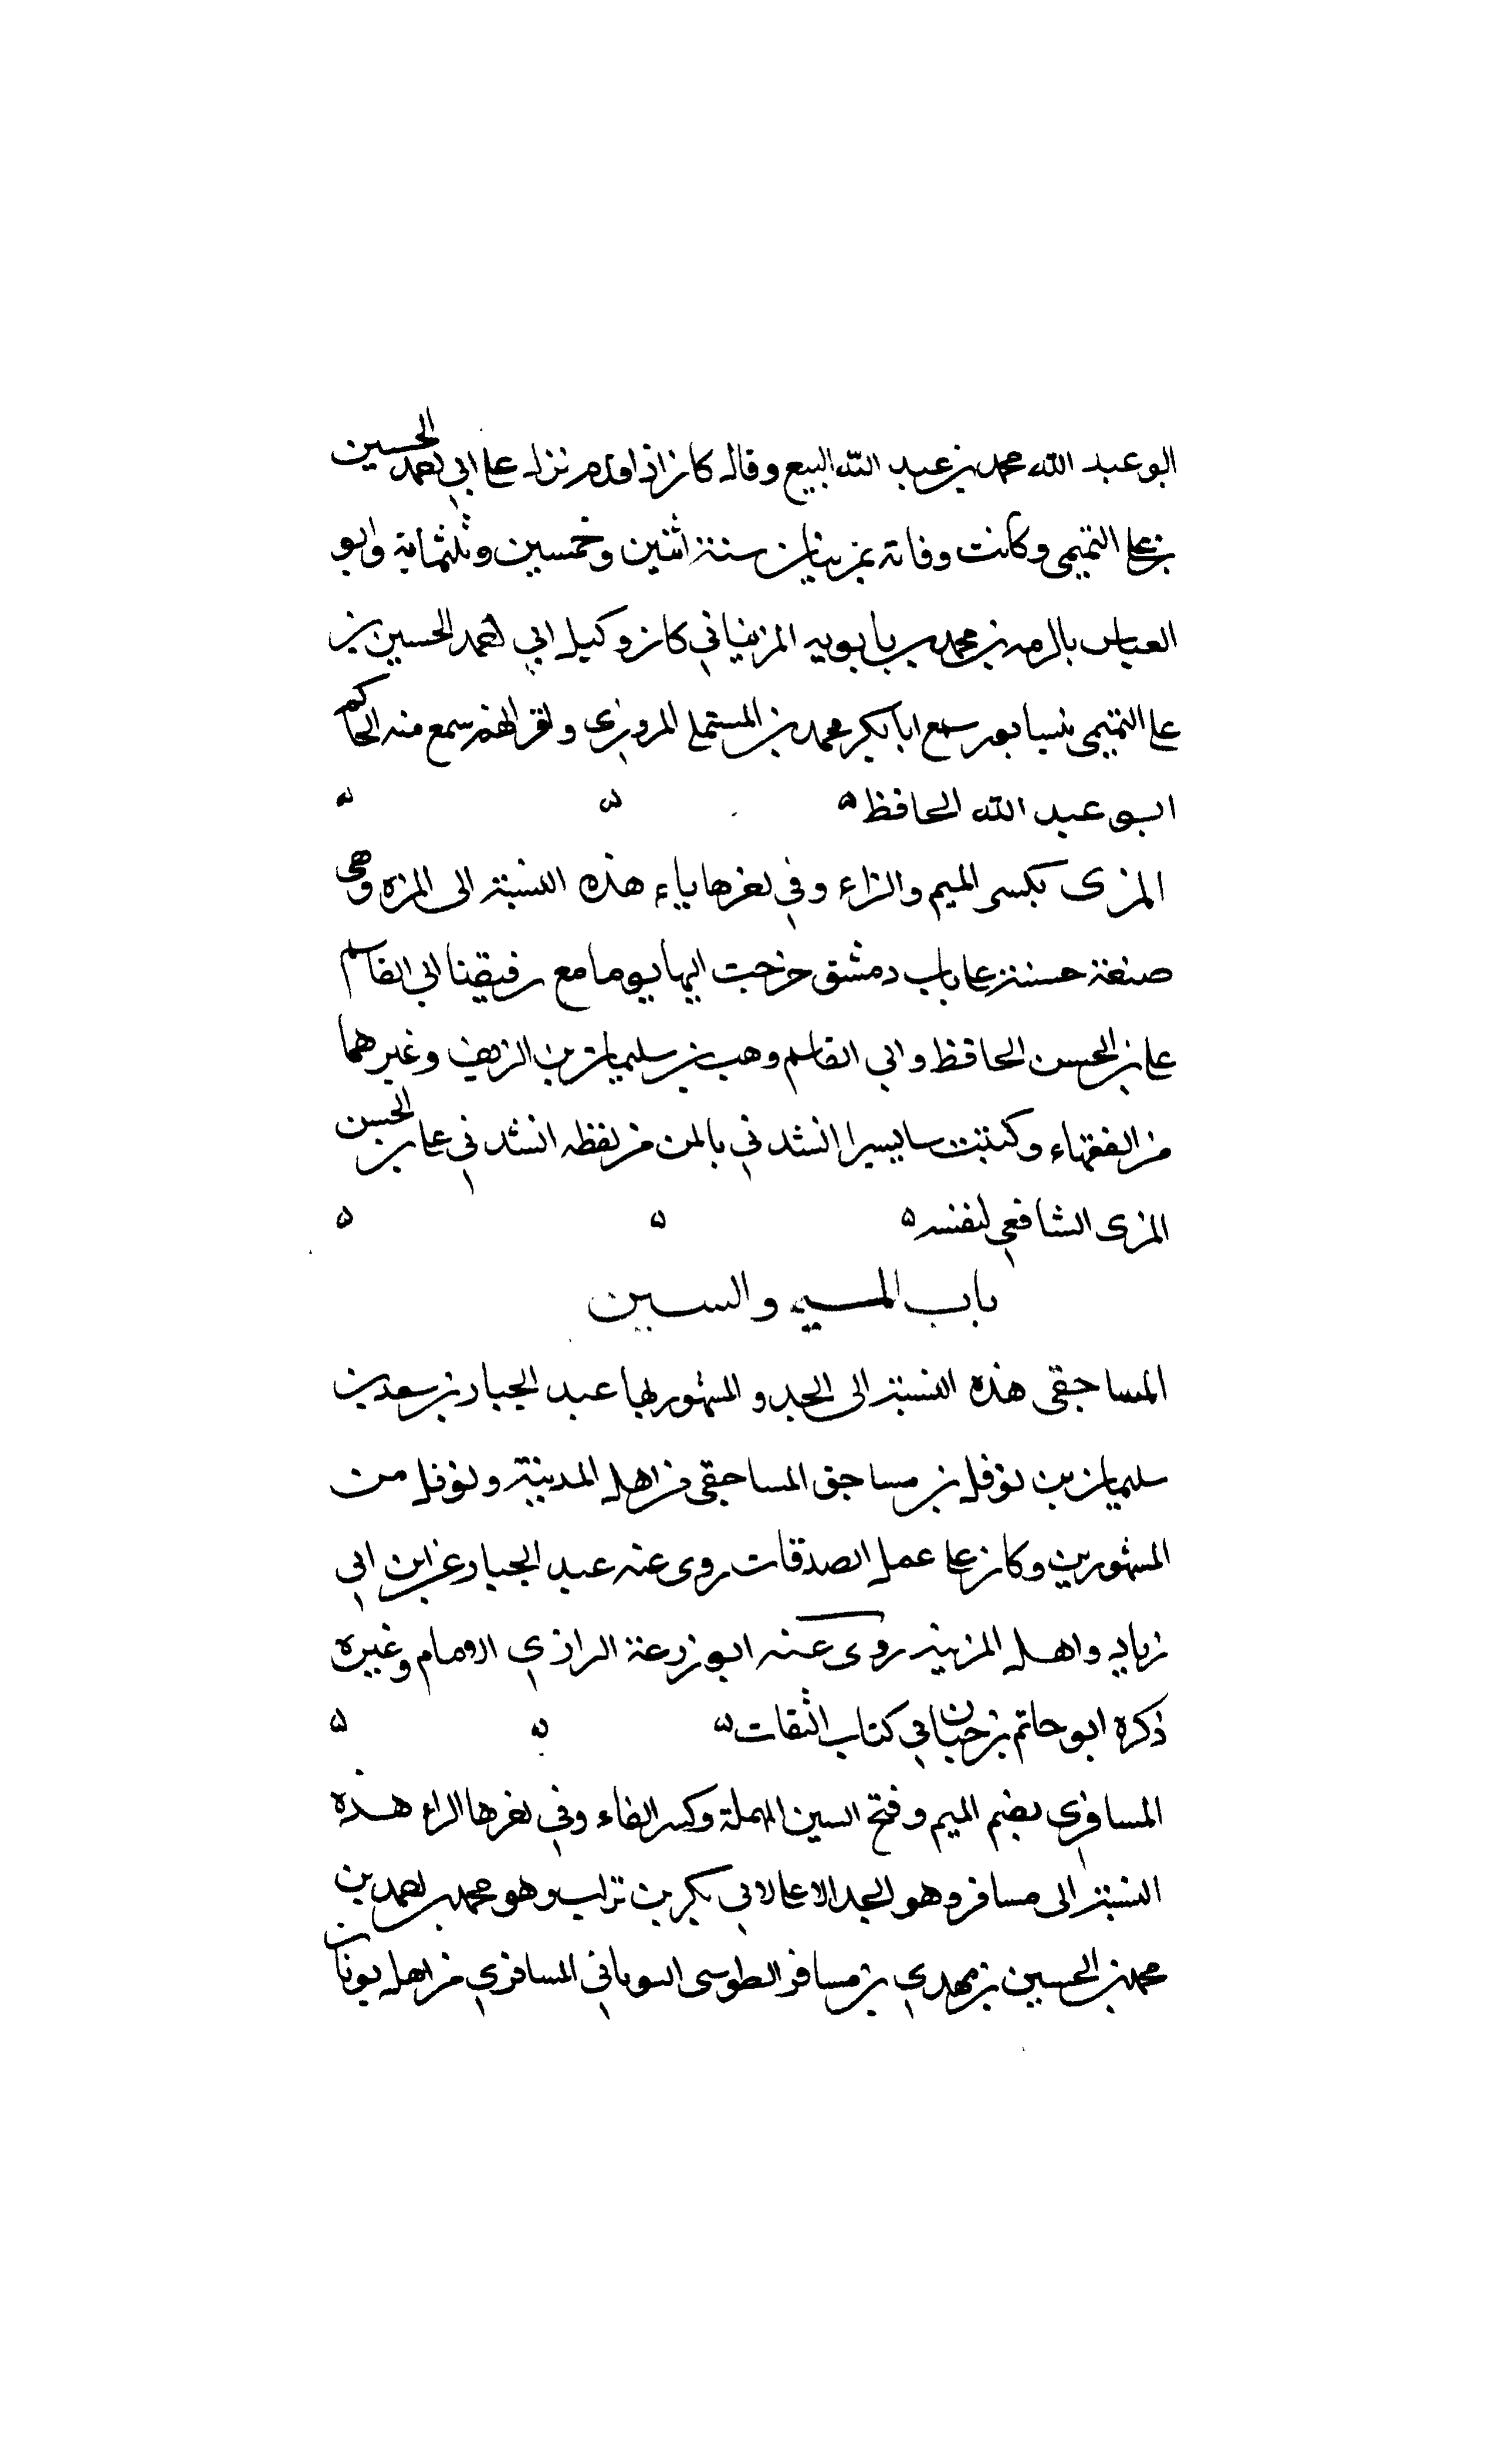 ابو عبد الله محمد بن عبد الله البيع وقال كان اذا قدم نزل على ابي احمد الحسين
بن علي التميمي وكانت وفاته بمزينان سنة اثنين وخمسين وثلثماية وابو
العباس بن محمد بن بابويه المزيناني كان وكيل ابي احمد الحسين بن
علي التميمي بنيسابور سمع ابا بكر محمد بن المستملي المروزي واقرانهم سمع منه الحاكم
ابو عبد الله الحافظ ه ه ه
المزي بكسر الميم والزاء وفي اخرها ياء هذه النسبة الى المزه وهي
ضيعة حسنة على باب دمشق خرجت اليها يوما مع رفيقنا ابي القاسم
علي بن الحسن الحافظ وابي القاسم وهب بن سليمان بن الزيف وغيرهما
من الفقهاء وكتبت بها يسيرا انشدني بالمزة من لفظه انشدني علي بن الحسن
المزي الشافعي لنفسه ه ه ه
باب الميم والسين
المساحقي هذه النسبة الى الجد والمشهور بها عبد الجبار بن سعد بن
سليمان بن نوفل بن مساحق المساحقي من اهل المدينة ونوفل من
المشهورين وكان على عمل الصدقات روى عنه عبد الجبار عن ابن ابي
زياد واهل المدينة روى عنه ابو زرعة الرازي الامام وغيره
ذكره ابو حاتم بن حبان في كتاب الثقات ه ه ه
المسافري بضم الميم وفتح السين المهملة وكسر الفاء وفي اخرها الراء هذه
النسبة الى مسافر وهو الجد الاعلى لابي بكر بن تراب وهو محمد بن احمد بن
محمد بن الحسين بن مهدي بن مسافر الطوسي النوقاني المسافري من اهل نوقان